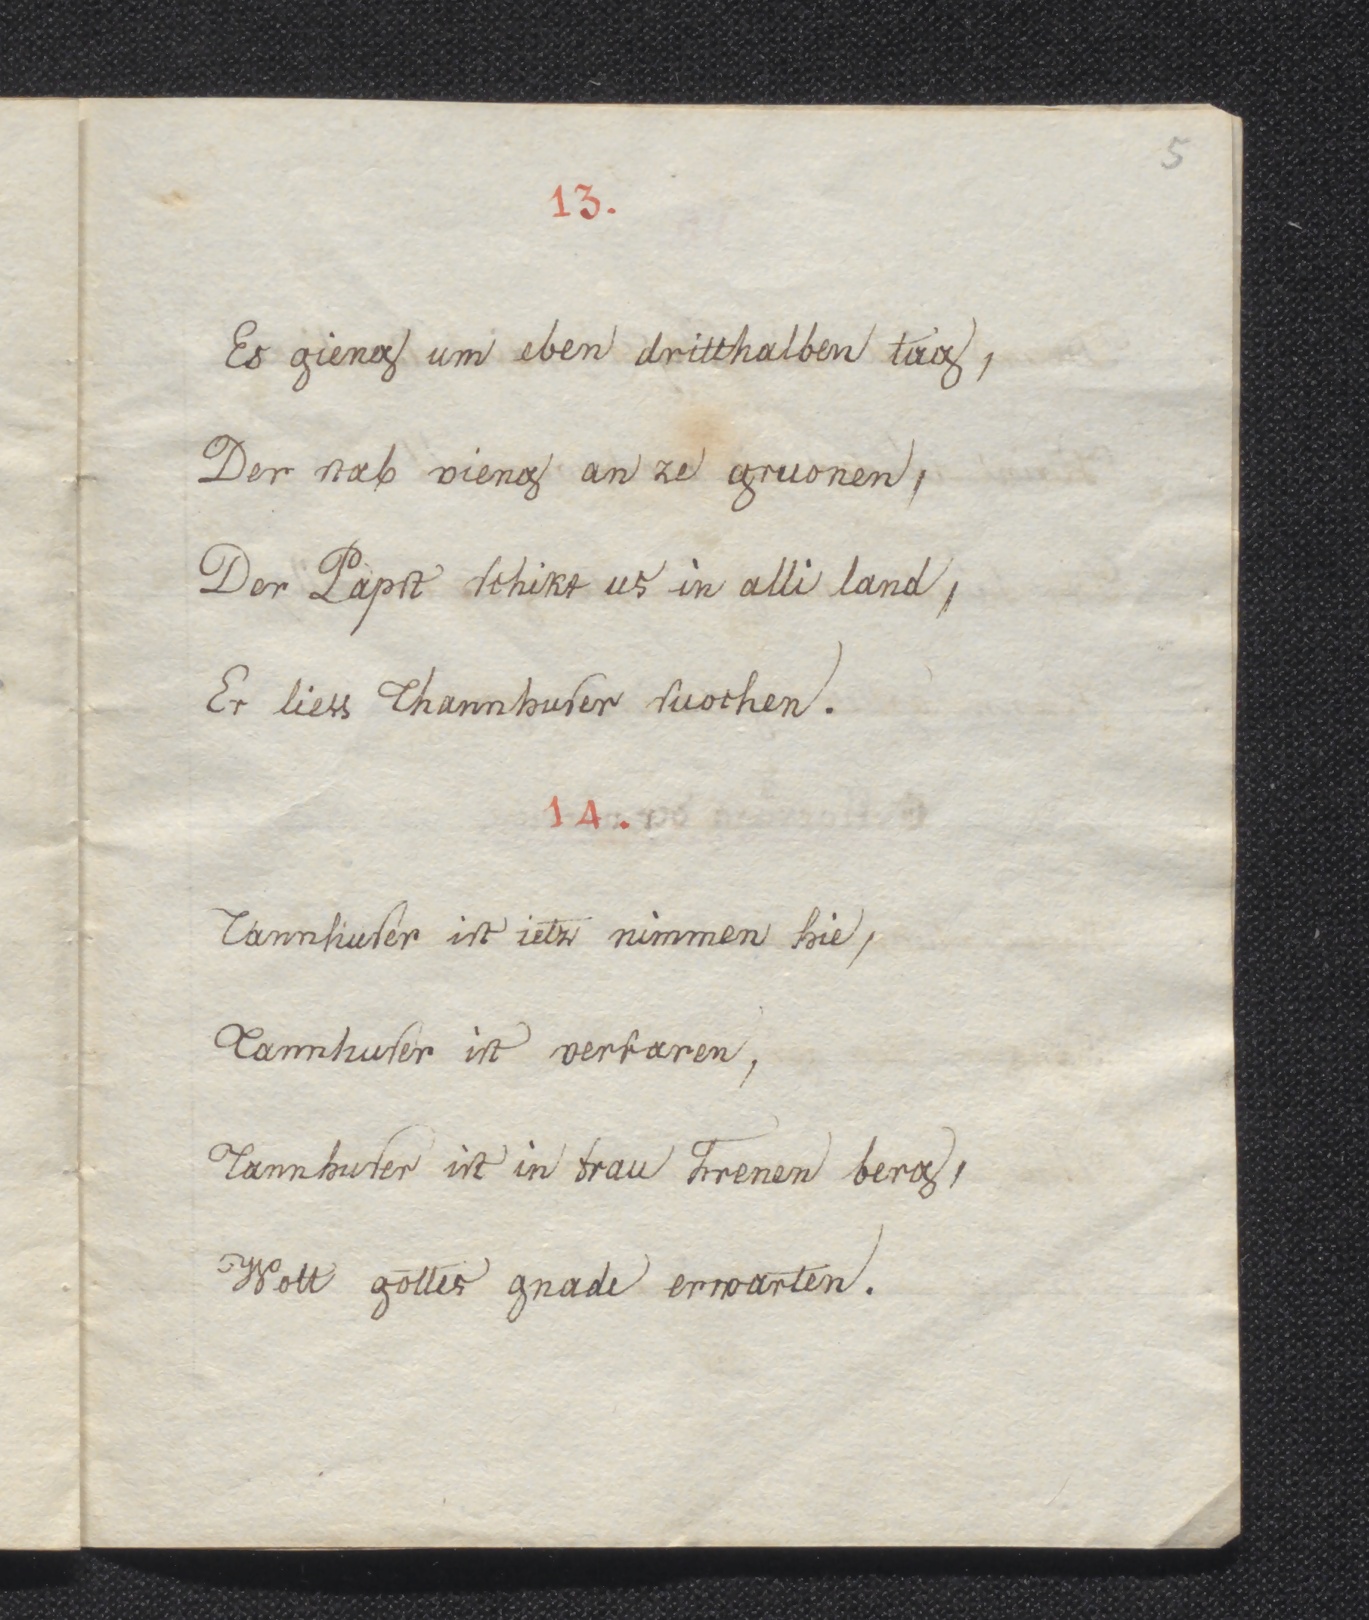 5
13.
Es gieng um eben dritthalben tag,
Der stab vieng an ze gruonen,
Der Papst schikt us in alli land,
Er liess Thannhuser suochen.
14.
Tannhuser ist ietz nimmen hie,
Tannhuser ist verfaren,
Tannhuser ist in frau Frenen berg,
Wott gottes gnade erwarten.